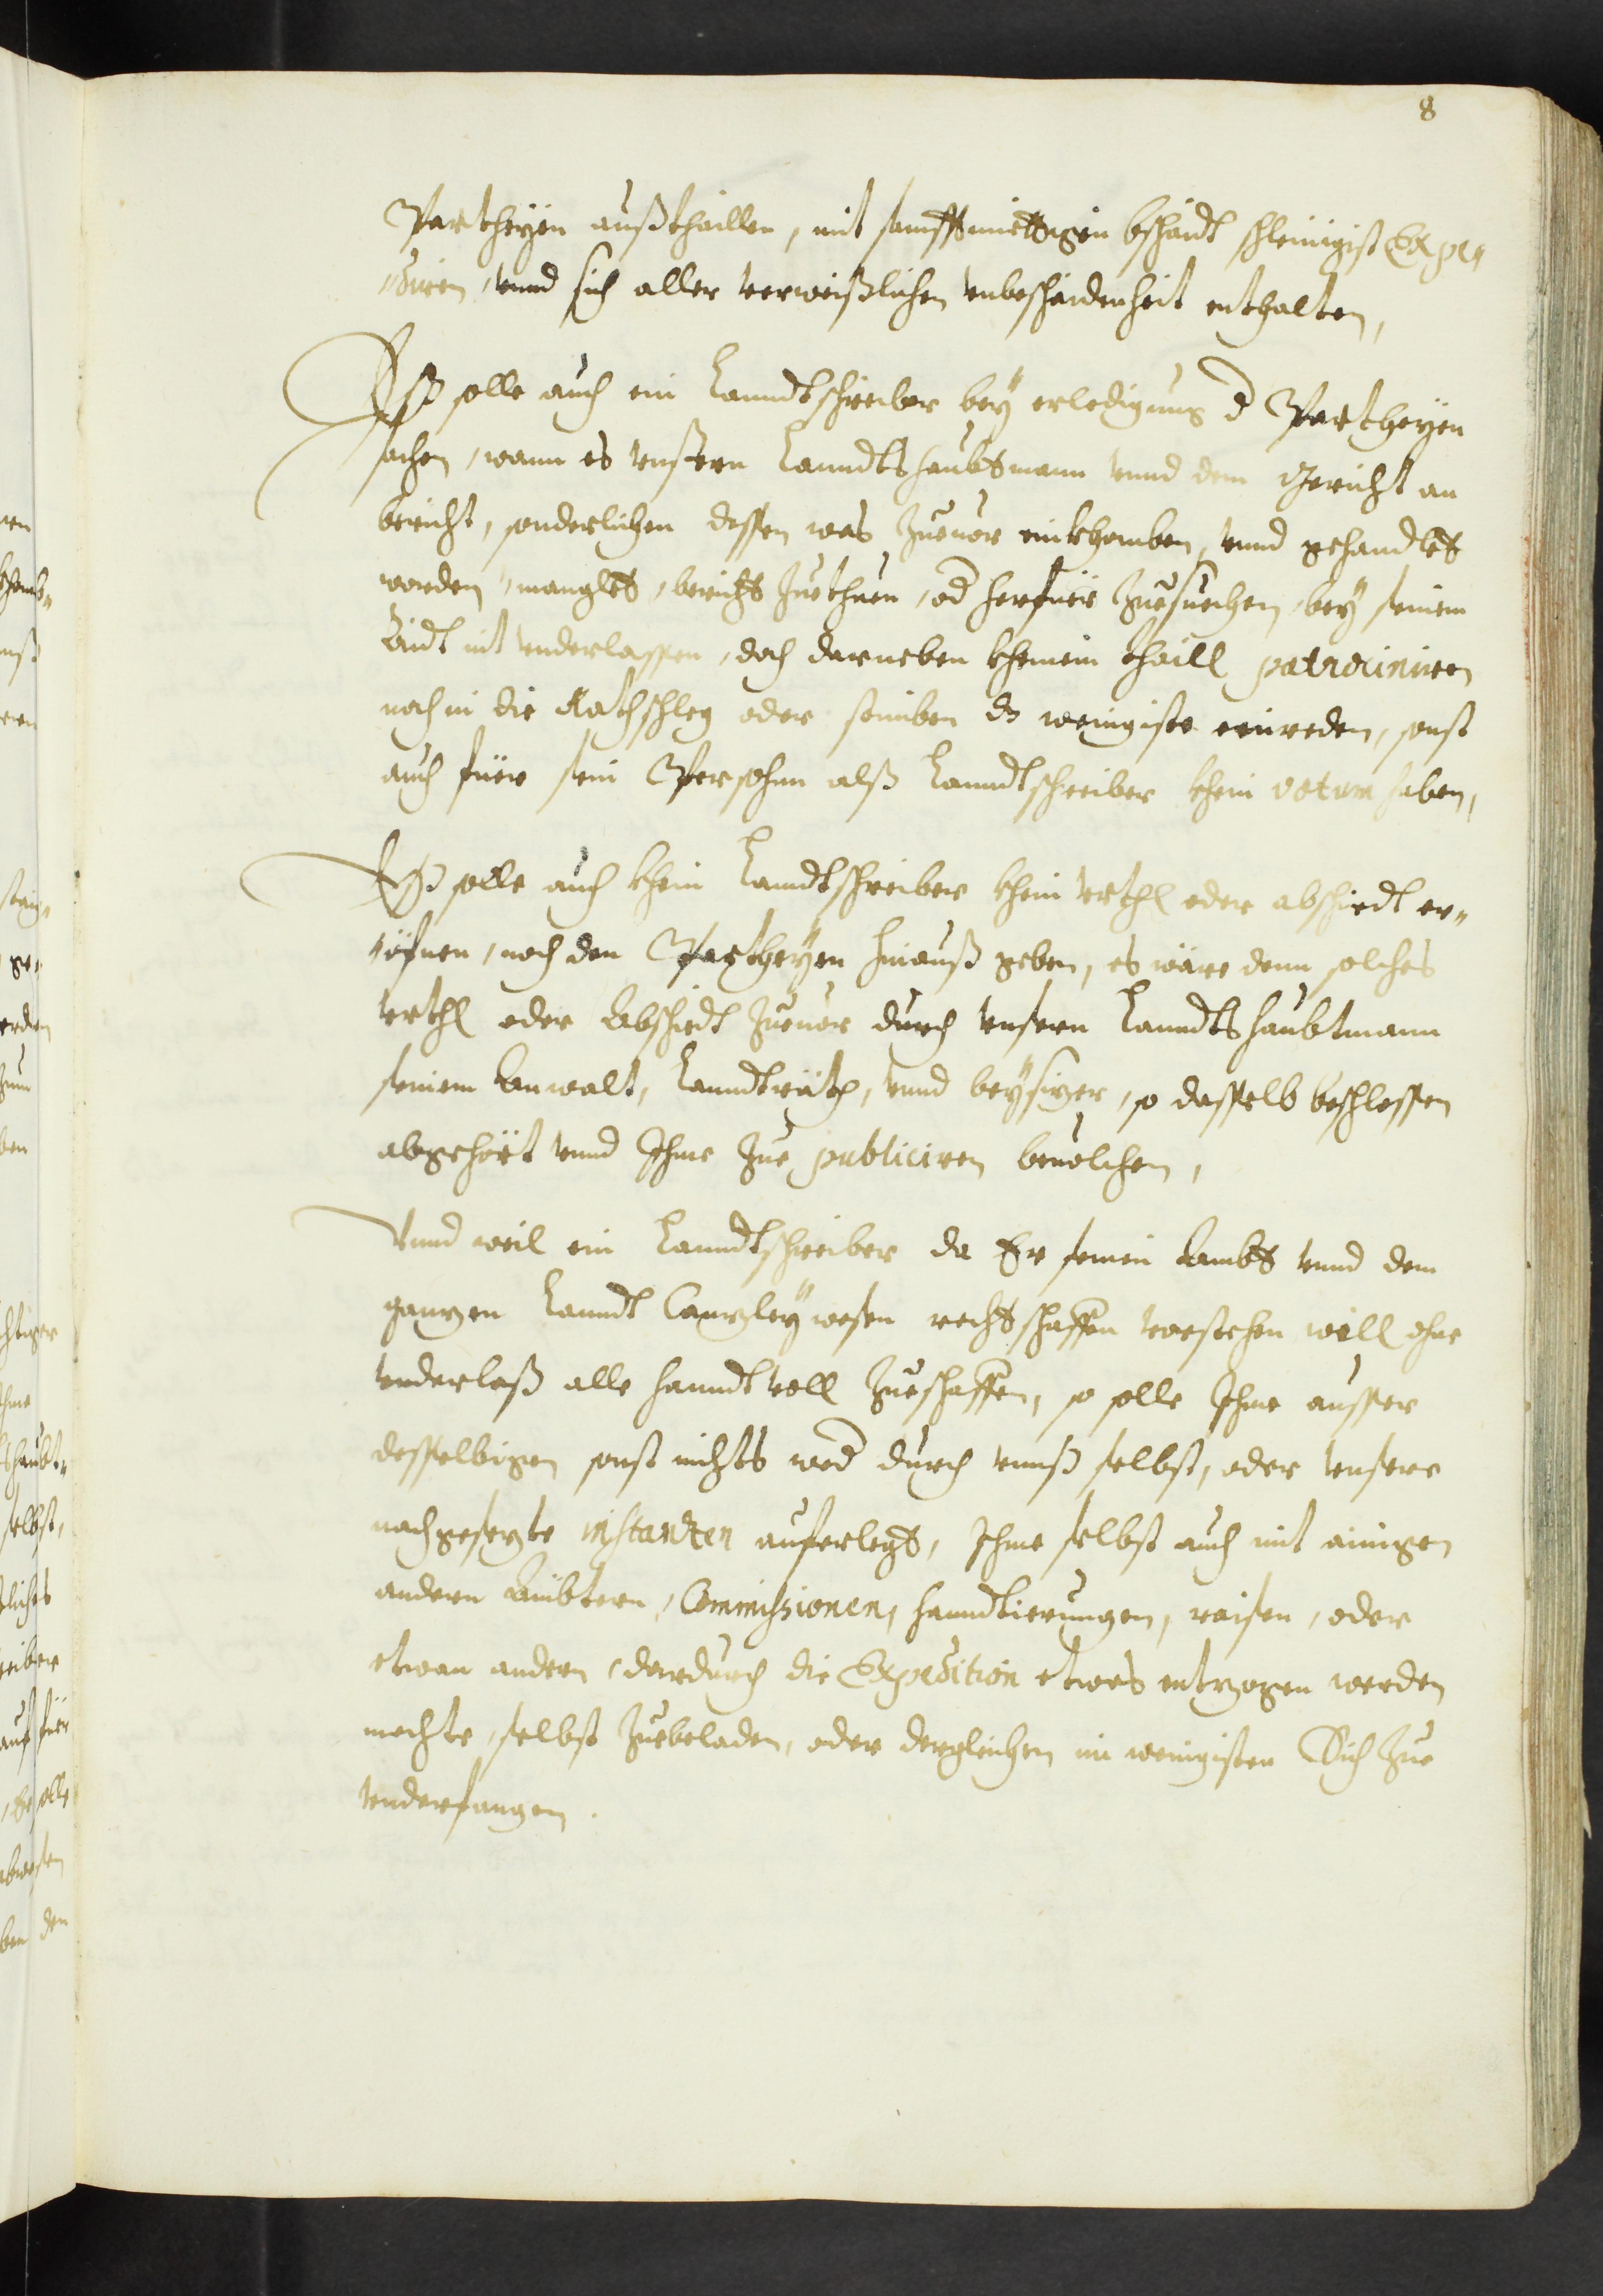 8
Partheÿen außthaillen, mit sanfftmüettigen bschaidt schleinigist Expe„
„diren, vnnd sich aller verweißlichen vnbeschaidenheit enthalten,
Eß solle auch ein Lanndtschreiber beÿ erledigung d Partheÿen
sachen, wann es vnsern Lanndtshaubtmann vnnd dem Gericht an
bericht, sonderlichen dessen was zueuor einkhomben, vnnd gehandlet
worden, manglet, bericht zuethuen, od herfüer zuesuechen, beÿ seinem
Aidt nit vnderlassen, doch darneben kheinem thaill patrociniren
noch in die Rathschleg oder stimben ds wenigiste einreden, sonst
auch füer sein Persohn alß Lanndtschreiber khein votum haben,
Eß solle auch khein Lanndtschreiber khein vrthl oder abschiedt er„
„öfnen, noch den Partheÿen hinauß geben, es wäre dann solches
vrthl oder Abschiedt zueuor durch vnsern Lanndtshaubtmann
seinem Anwalt, Lanndträth, vnnd beÿsizer, so dasselb beschlossen
abgehört vnnd Ihme zue publiciren beuolchen,
Vnnd weil ein Lanndtschreiber da Er seinen Ambt vnnd dem
ganzen Lanndt Canzleÿ wesen rechtschaffen vorstehen will ohne
vnderlaß alle hanndt voll zueschaffen, so solle Ihme ausser
desselbigen sonst nichts wed durch vnnß selbst, oder vnsere
nachgesezte instanzen auferlegt, Ihme selbst auch mit ainigen
andern Ämbtern, Commissionen, hanndtierungen, raisen, oder
etwan andern, dardurch die Expedition etwas entzogen werden
mechte, selbst zuebeladen, oder dergleichen im wenigisten Sich zue
vnderfangen.